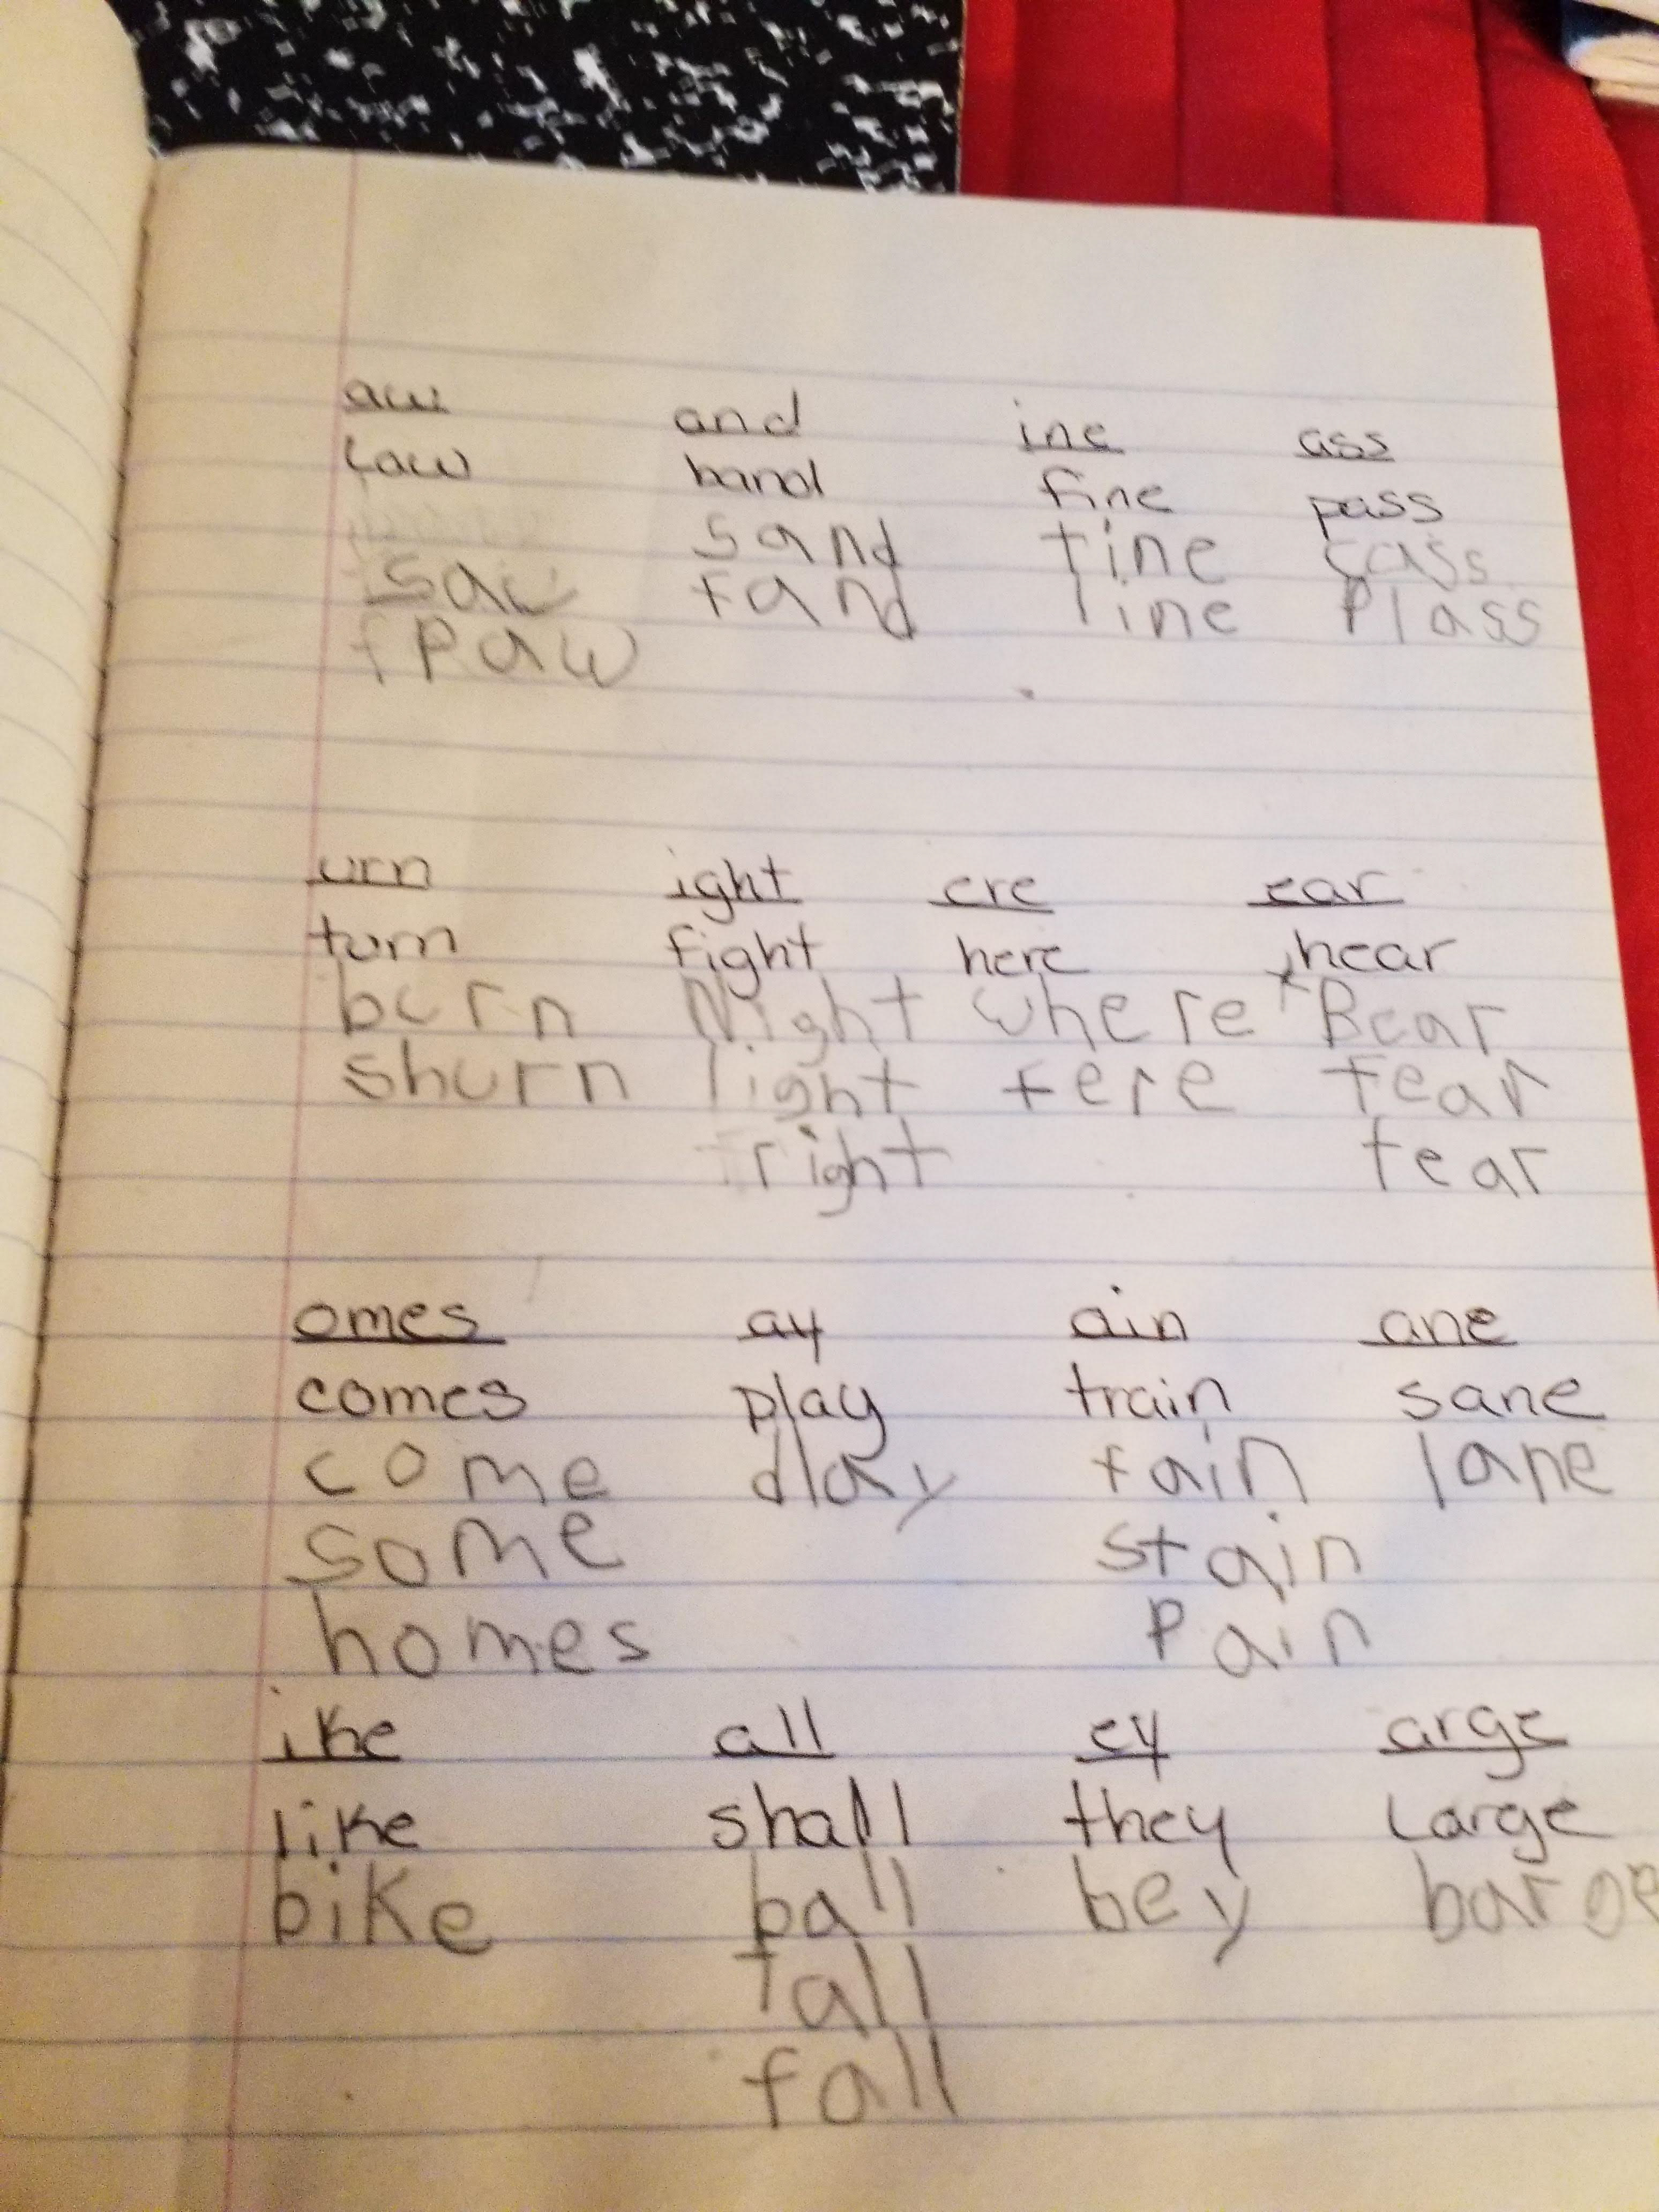 aw and ine ass
law hand fine pass
sand tine cass
saw tand line Plass
paw
urn ight ere ear
turn fight here hear
burn Night where Bear
shurn light tere fear
right tear
omes ay ain ane
comes play train sane
come dlay tain lane
some stain
homes Pain
ike all ey arge
like shall they Large
bike ball bey barge
tall
fall